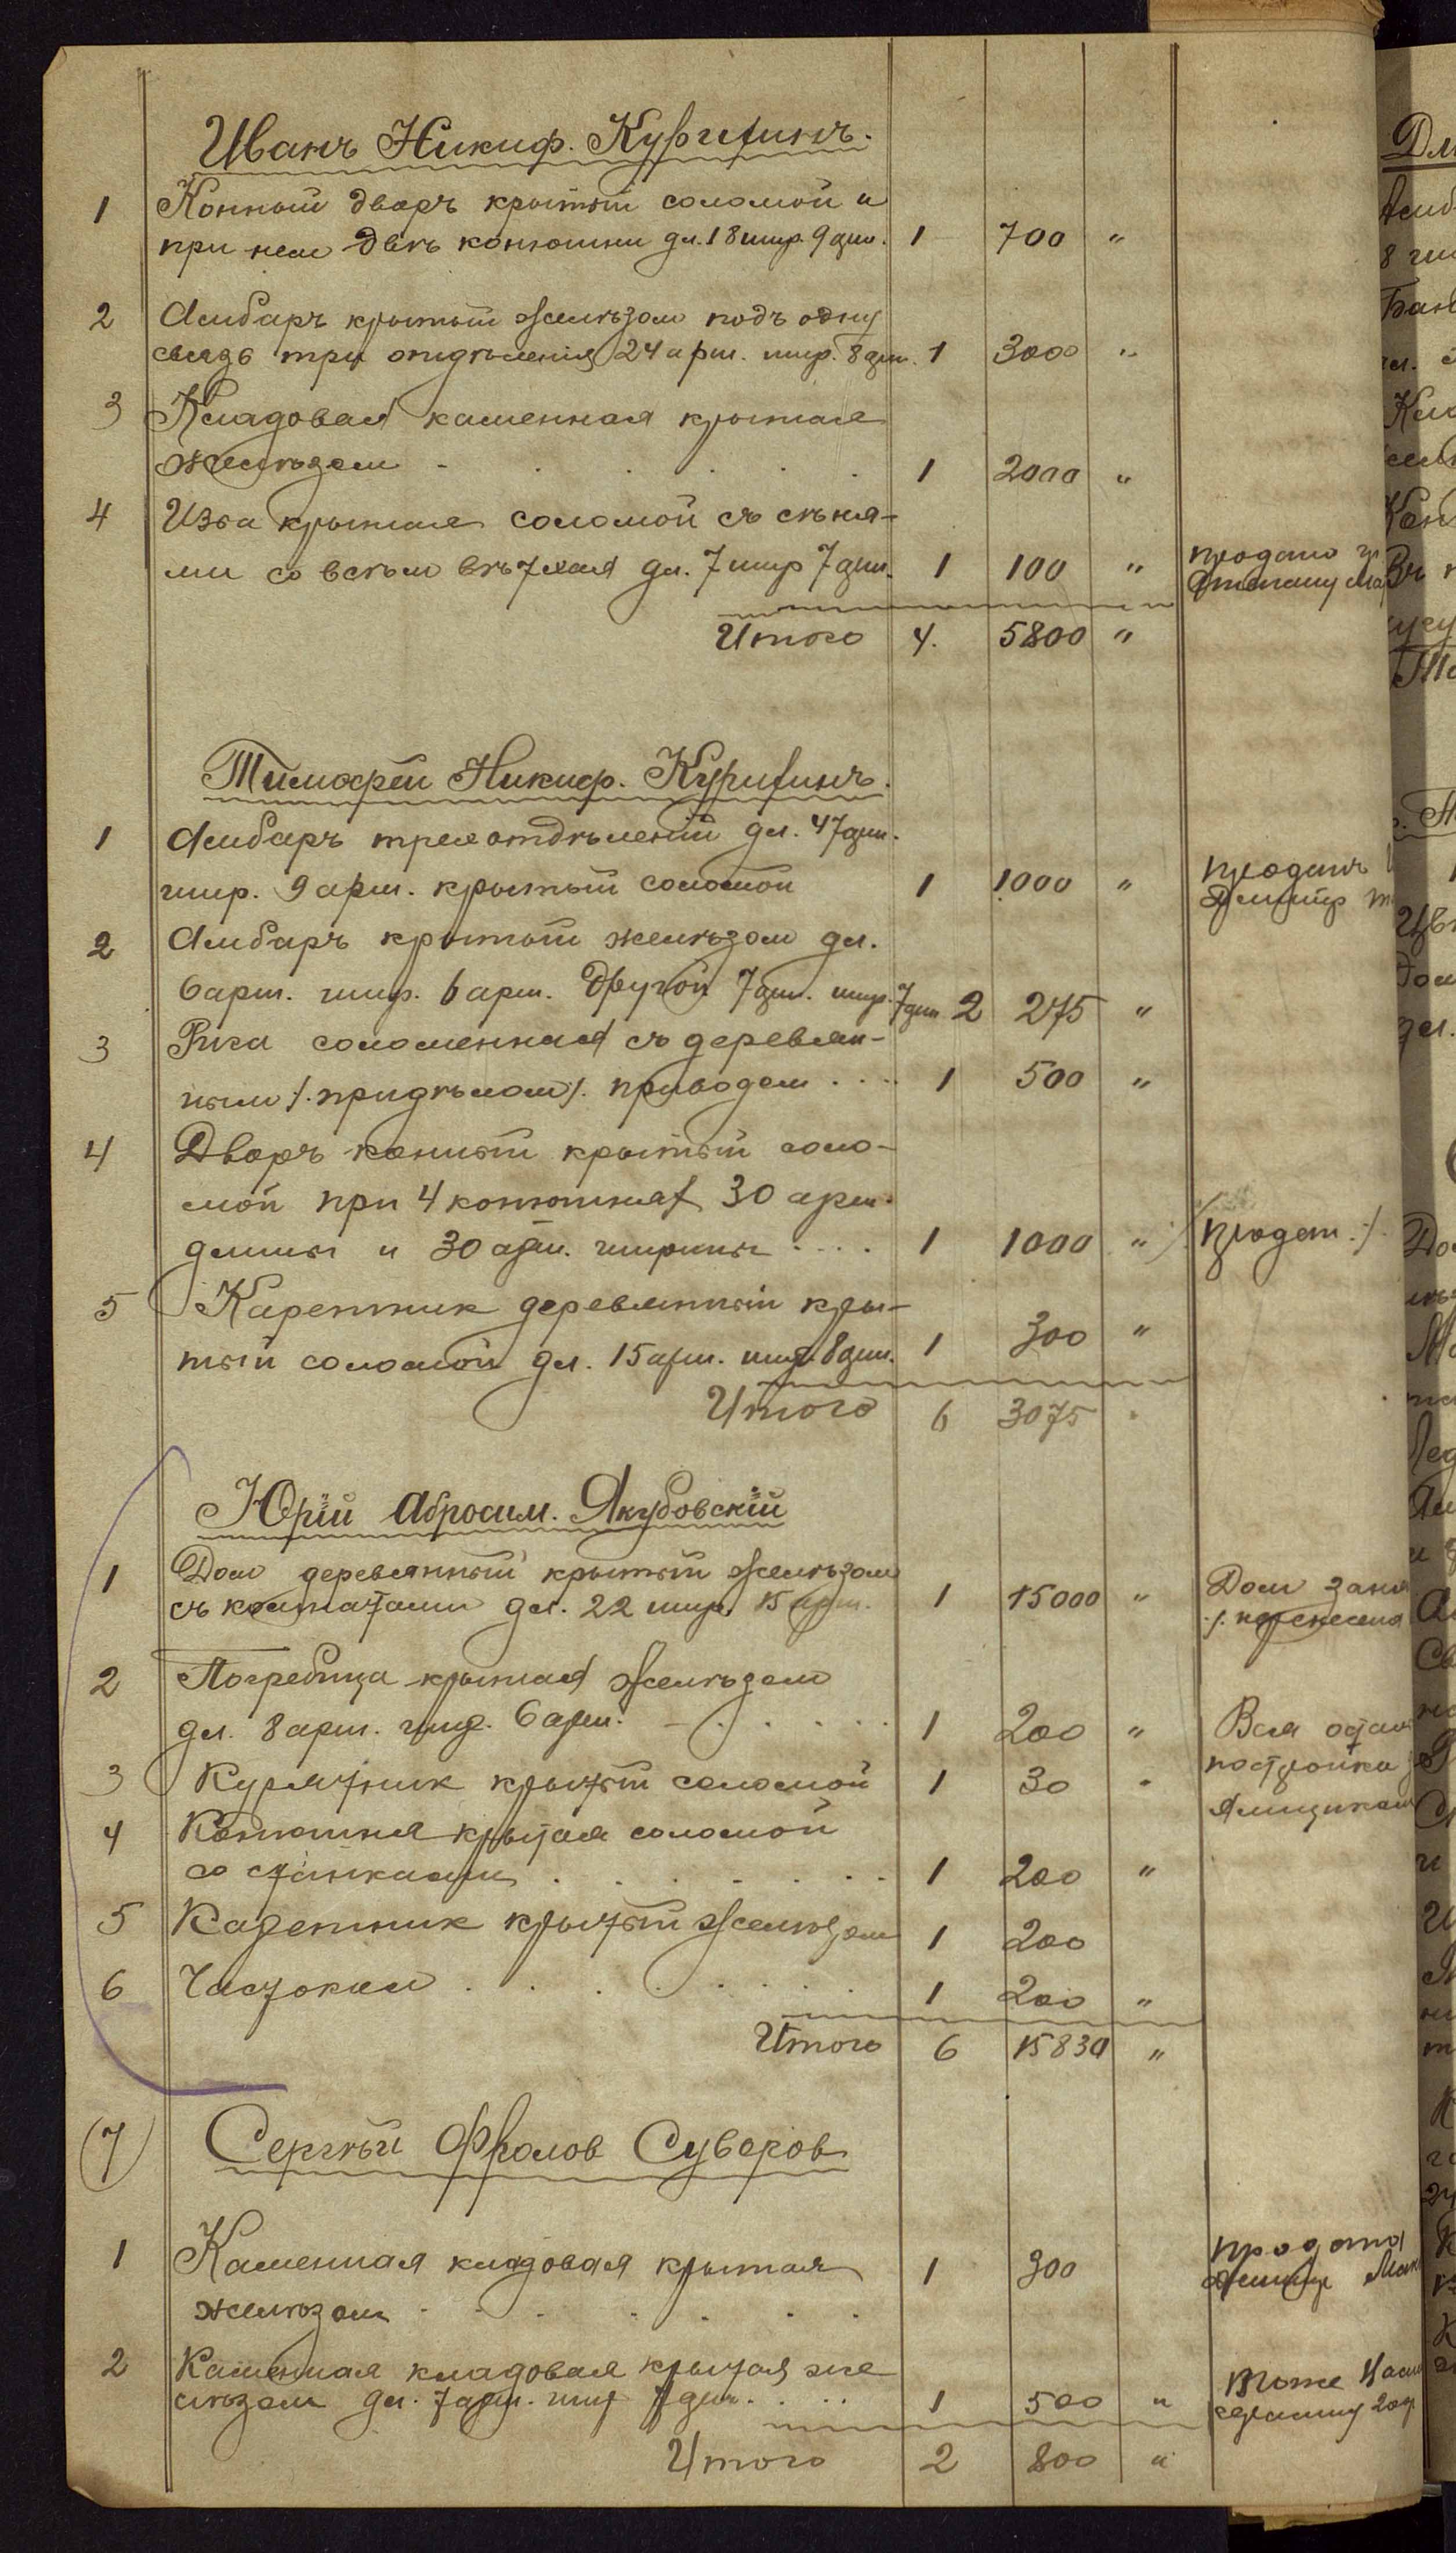 Иванъ Никиф. Курихинъ.
1 Конный дворъ крытый соломой и
при нем двѣ конюшни дл. 18 шир. 9 дли. 1 700 "
2 Амбаръ крытый желѣзом подъ одну
связь три отдѣленія 24 арш. шир. 8 дли. 1 3000 "
3 Кладовая каменная крытая
желѣзом 1 2000 "
4 Изба крытая соломой съ сѣня-
ми со всѣм дл. 7 шир 7 дли. 1 100 " продано
Степану
Итого 4. 5800 "
Тимофей Никиф. Курихинъ.
1 Амбаръ трех отдѣленій дл. 47 дли.
шир. 9 арш. крытый соломой 1 1000 " продань
2 Амбаръ крытый желѣзом дл.
6 арш. шир. 6 арш. Другой 7 дли. шир. 7 дли 2 275 "
3 Рига соломенная съ деревян-
ным /. придѣлом /. приводом . . . . 1 500 "
4 Дворъ конный крытый соло-
мой при 4 конюшнях 30 арш.
длины и 30 арш. ширины . . . . 1 1000 " /. продан ./.
5 Каретник деревянный кры-
тый соломой дл. 15 арш. шир. 8 дли. 1 300 "
Итого 6 3075
Юрій Абросим. Якубовскій
1 Дом деревянный крытый желѣзом 1 15000 " Дом
съ комнатами дл. 22 шир. 15 арш. /. перенесена
2 Погребица крытая желѣзом
дл. 8 арш. шир. 6 арш. 1 200 " Вся
3 Курятник крытый соломой 1 30 " постройка
4 Конюшня крытая соломой
со стойками 1 200 "
5 Каретник крытый желѣзом 1 200
6 Частокол 1 200 "
Итого 6 15830 "
(7) Сергѣй Фролов Суворов
1 Каменная кладовая крытая 1 300 продана
желѣзом
2 Каменная кладовая крытая же
лѣзом дл. 7 арш. шир 7 дли. 1 500 " Тоже
Итого 2 800 "